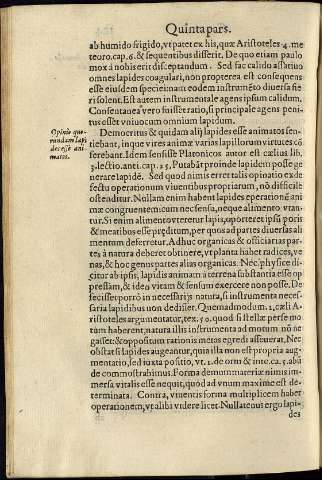 Quinta pars.
ab humido frigido, vt patet ex his, quæ Aristoteles 4. me
teoro. cap. 6. & sequentibus disserit. De quo etiam paulo
mox à nobis erit disceptandum. Sed fac calido assatiuo
omnes lapides coagulari, non propterea est consequens
esse eiusdem speciei: nam eodem instrumẽto diuersa fie
ri solent. Est autem instrumentale agens ipsum calidum.
Consentanea vero fuisset ratio, si principale agens peni
tus esset vniuocum omnium lapidum.
Opinio quo-
rundam lapi
des esse ani-
matos.
Democritus & quidam alij lapides esse animatos sen
tiebant, inque vires animæ varias lapillorum virtutes cõ
ferebant. Idem sensisse Platonicos autor est cælius lib.
lectio. anti. cap. 25. Putabãt proinde lapidem posse ge
nerare lapidẽ. Sed quod nimis erret talis opinatio ex de
fectu operationum viuentibus propriarum, nõ difficile
ostenditur. Nullam enim habent lapides operationẽ ani
mæ congruentem: cum nec sensu, neque alimento vtan-
tur. Si enim alimento vterẽtur lapis, oporteret ipsũ poris
& meatibus esse præditum, per quos ad partes diuersas ali
mentum deferretur. Adhuc organicas & officiarias par
tes à natura deberet obtinere, vt planta habet radices, ve
nas, & hoc genus partes alias organicas. Nec physice di
citur ab ipsis, lapidis animam à terrena substantia esse op
pressam, & ideo vitam & sensum exercere non posse. De
fecisset porrò in necessarijs natura, si instrumenta neces-
saria lapidibus non dedisset. Quemadmodum 2. cæli A-
ristoteles argumentatur, tex. 50. quod si stellæ per se mo
tum haberent, natura illis instrumenta ad motum nõ ne
gasset: & oppositum rationis metas egredi asseuerat. Nec
obstat si lapides augeantur, quia illa non est propria aug-
mentatio, sed iuxta positio, vt 1. de orni & inte. ca. 5. abũ
de commostrabimus. Forma demum materiæ nimis im-
mersa vitalis esse nequit, quòd ad vnum maxime est de-
terminata. Contra, viuentis forma multiplicem haber
operationem, vt alibi videre licet. Nullatenus ergo lapi-
des